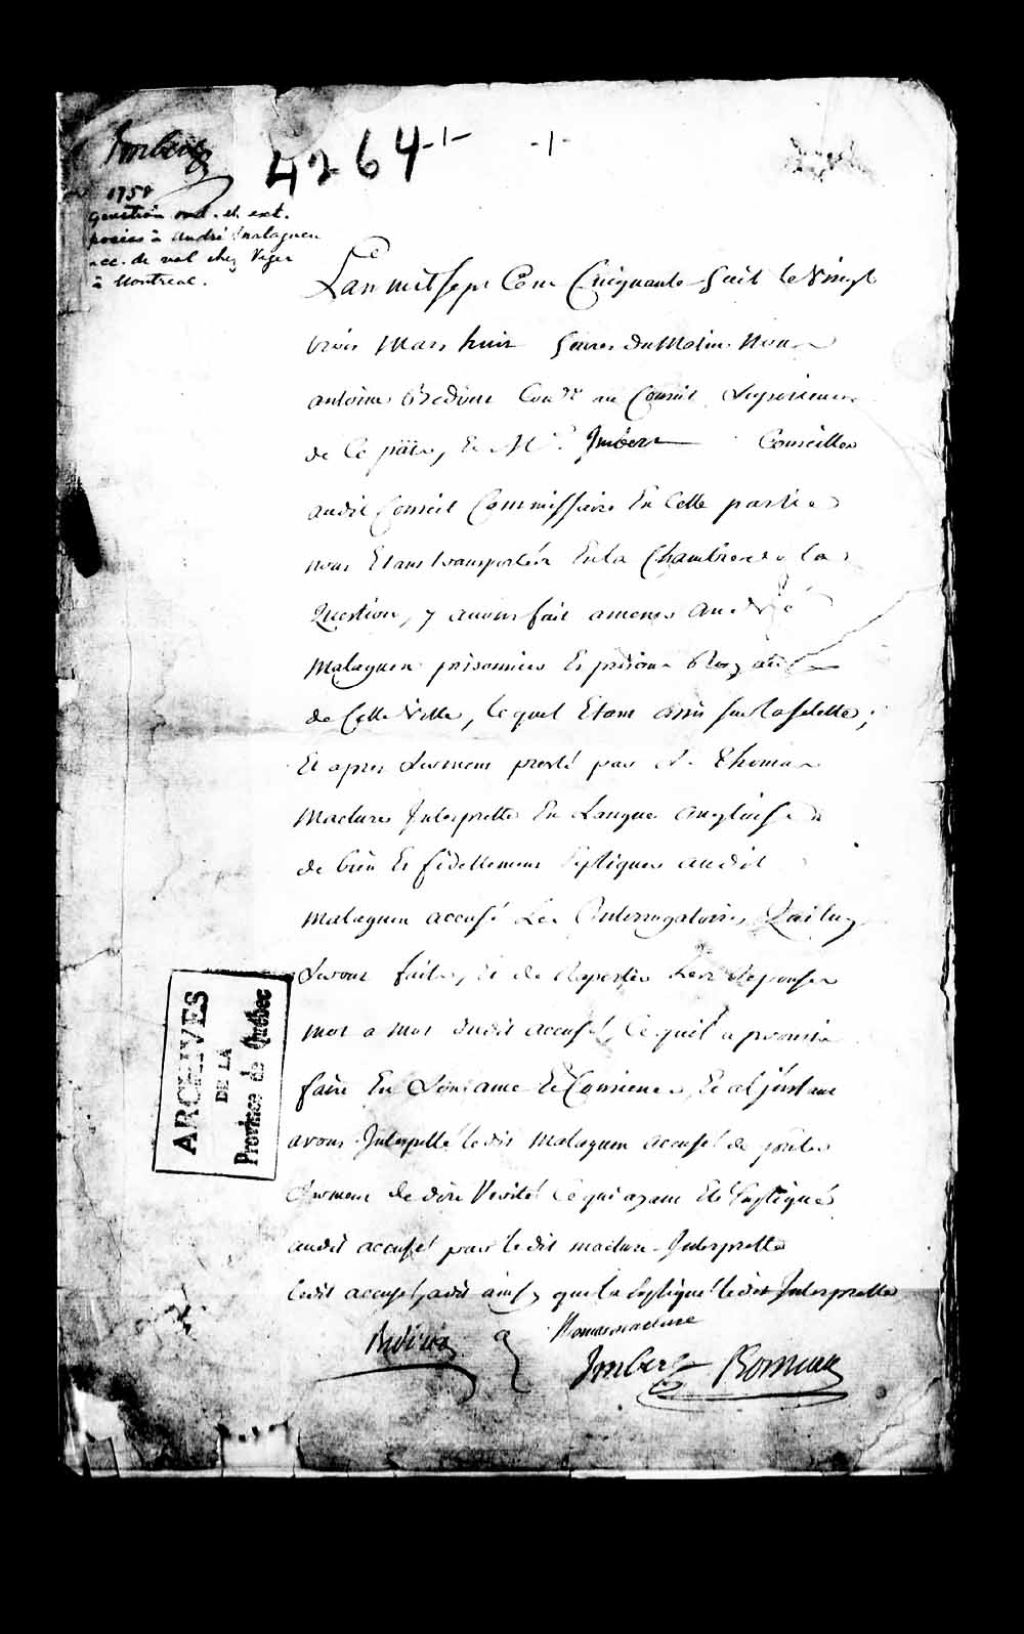 Imbert
4264 -1-
-1-
1758
question ord. et ext.
posées à André Malaguen
acc. de vol chez Viger
à Montreal.
Lan mil sept Cent Cinquante huit le Vingt
trois Mars huit heures du Matin Nous
antoine Crespin Con.er au Conseil Superieur
de Ce païs, Et Mr. Imbert Conseiller
audit Conseil Commissaire En Cette partie
nous Etans transportés En la Chambre de la
Question, y avons fait amener André
Malaguen prisonnier Es prisons Royalles
de Cette Ville, lequel Etant assis sur la selette;
Et apres serment presté par Sr. Thomas
Maclure Interprette En Langue angloise
de bien Et fidellement Expliquer audit
Malaguen accusé Les Interrogatoires Quiluy
seront faits, Et de Raporter Les Réponses
mot a mot dudit accusé, Ce quil a promis
faire En Son ame Et Conscience, Et a l'jnstant
avons Interpellé ledit Malaguen accusé de prêter
serment de dire Verité Ce qui ayant Eté Expliqué
audit accusé par ledit maclure Interprette
ledit accusé, a dit ainsy que la Expliqué ledit Interprette
Thomas maclure
Imbert